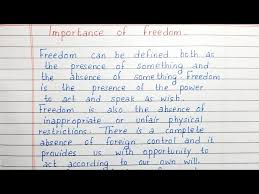 Importance of freedom
Freedom can be defined both as
the presence of something and
the absence of something. Freedom
is the presence of the power
to act and speak as wish.
Freedom is also the absence of
inappropriate or unfair physical
restrictions. There is a complete
absence of foreign control and it
provides us with opportunity to
act according to our own will.